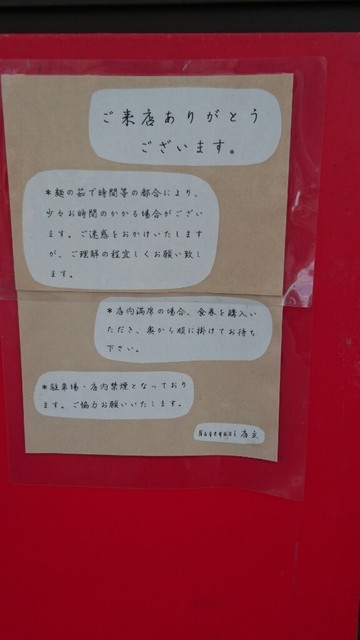 ご来店ありがとう
ございます。
*麺の茹で時間等の都合により、
少々お時間のかかる場合がござい
ます。ご迷惑をおかけいたします
が、ご理解の程宜しくお願い致し
ます。
*店内満席の場合、食券を購入い
ただき、奥から順に掛けてお待ち
下さい。
*駐車場・店内禁煙となっており
ます。ご協力お願いいたします。
店主